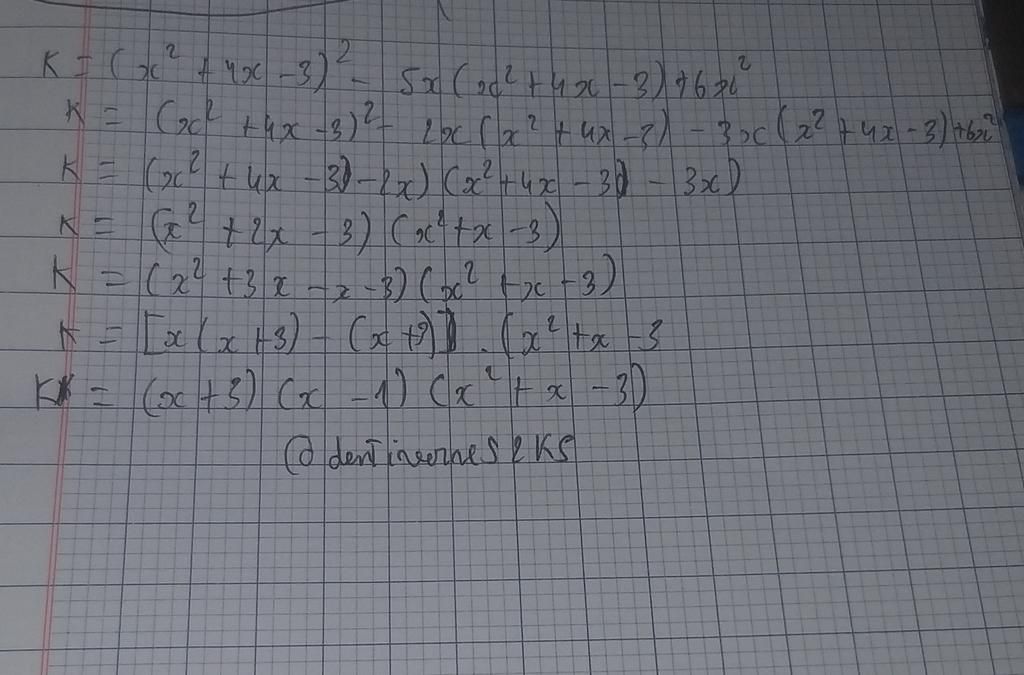 K = (x² + 4x - 3)² - 5x(x² + 4x - 3) + 6x²
K = (x² + 4x - 3)² - 2x(x² + 4x - 3) - 3x(x² + 4x - 3) + 6x²
K = (x² + 4x - 3) - 2x) (x² + 4x - 3) - 3x)
K = (x² + 2x - 3) (x² + x - 3)
K = (x² + 3x - x - 3) (x² + x - 3)
K = [x(x + 3) - (x + 3)] . (x² + x - 3
K = (x + 3) (x - 1) (x² + x - 3)